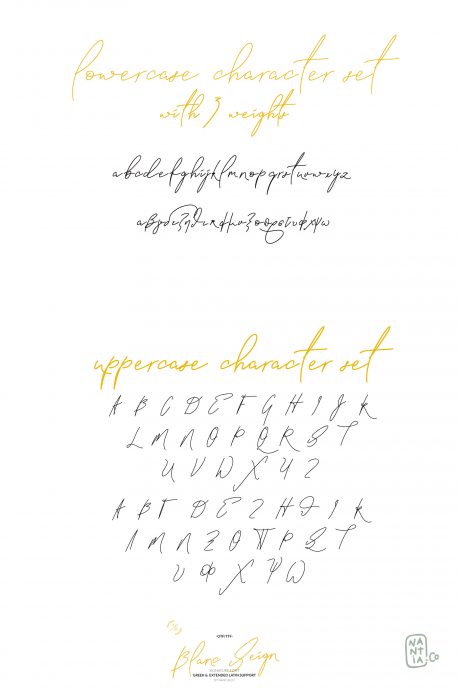 lowercase character set
with 3 weights
abcdefghijklmnopqrstuvwxyz
uppercase character set
A B C D E F G H I J K
L M N O P Q R S T
U V W X Y Z
Α Β Γ Δ Ε Ζ Η Θ Ι Κ
Λ Μ Ν Ξ Ο Π Ρ Σ Τ
Υ Φ Χ Ψ Ω
OTF/TTF
SIGNATURE FONT
GREEK & EXTENDED LATIN SUPPORT
NANTIA.CO